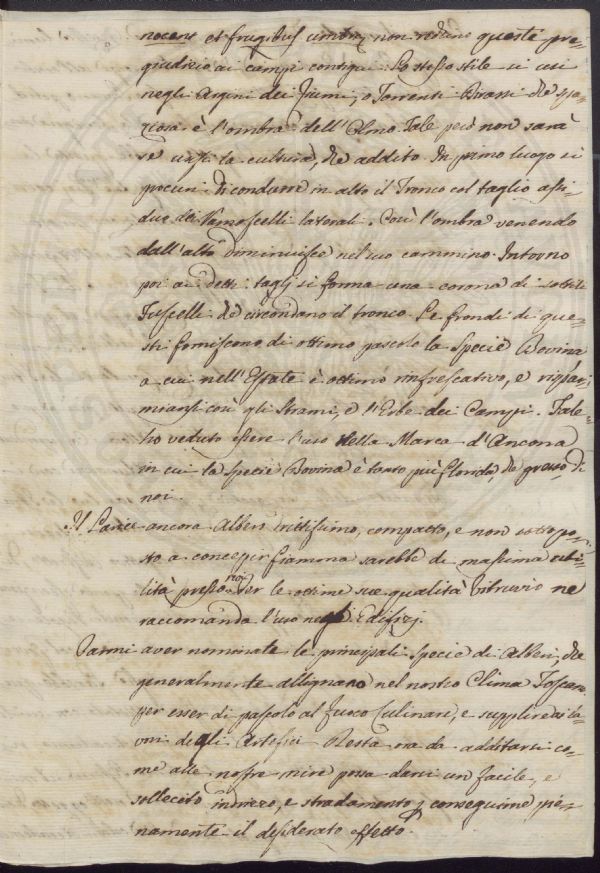 nocent et frugibus umbræ non rechino queste pre-
giudizio ai campi contigui. Lo stesso stile si usi
negli Argini dei Fiumi, o Torrenti Grossi che spa-
ziosa è l'ombra dell'Olmo. Tale però non sarà
se usasi la cultura, che addito. In primo luogo si
procuri di condurre in alto il Tronco col taglio assi-
duo dei Ramoscelli laterali. Così l'ombra venendo
dall'alto diminuisce nel suo cammino. Intorno
poi ai detti tagli si forma una corona di sottili
Fuscelli che circondano il tronco. Le frondi di que-
sti forniscono di ottimo pascolo la specie Bovina
a cui nell'Estate è ottimo rinfrescativo, e rispar-
miansi così gli strami, e l'Erbe dei Campi. Tale
ho veduto essere l'uso della Marca d'Ancona
in cui la specie Bovina è tanto più florida, che presso di
noi.
Il Larice ancora Albero drittissimo, compatto, e non sottopo-
sto a concepir fiamma sarebbe di massima uti-
lità presso noi per le ottime sue qualità Vitruvio ne
raccomanda l'uso negli Edifizj.
Parmi aver nominate le principali specie di Alberi, che
generalmente allignano nel nostro Clima Toscano
per esser di pascolo al fuoco Culinare, e supplire ai la-
vori degli Artefici Resta ora da additarsi co-
me alle nostre mire possa darsi un facile, e
sollecito indirizzo, e stradamento p conseguirne pie-
namente il desiderato effetto.